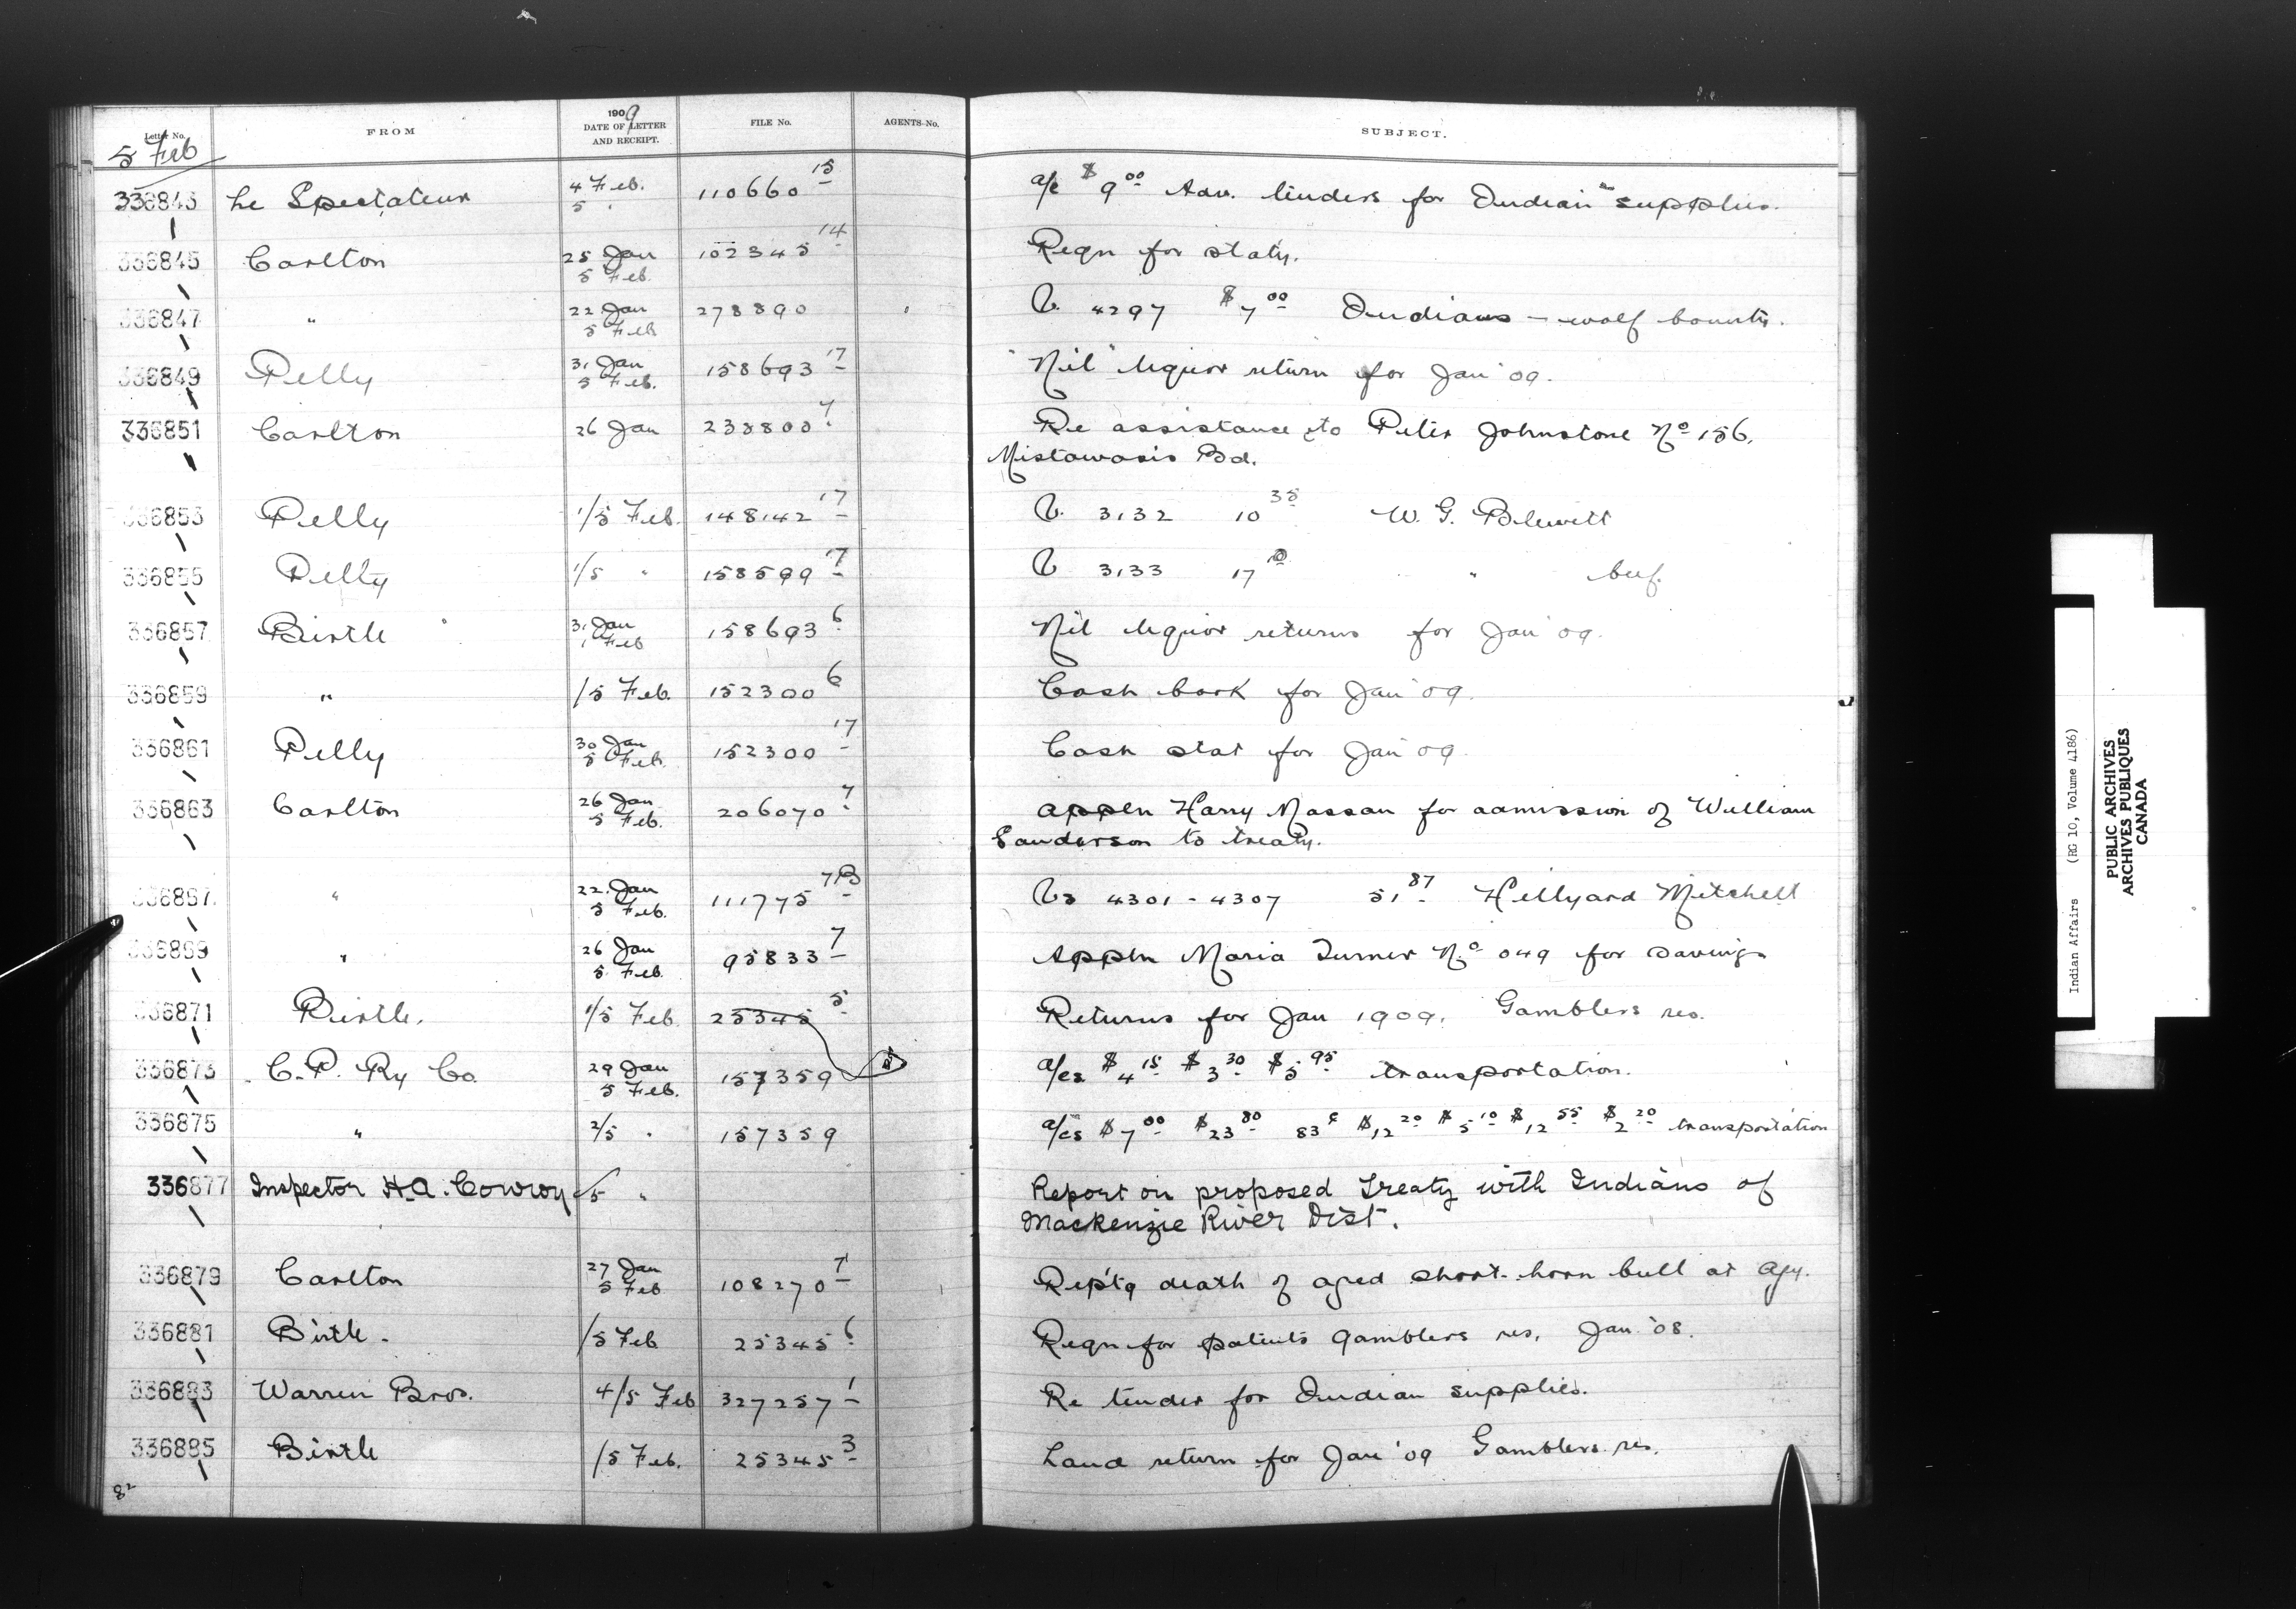 Letter No. FROM 1909 DATE OF LETTER AND RECEIPT. FILE No. AGENTS No. SUBJECT.
5 Feb
336843 Le Spectateur 4 Feb. 5 " 110660 15 a/c $9 00 Adv. tenders for Indian supplies.
336845 Carlton 25 Jan 5 Feb. 102345 14 Reqn for staty.
336847 " 22 Jan 5 Feb 278890 V. 4297 $7 00 Indians - wolf bounty.
336849 Pelly 31 Jan 5 Feb. 158693 17 "Nil" liquor return for Jan '09.
336851 Carlton 26 Jan 238800 7 Re assistance to Peter Johnstone No 156.
Mistawasis Bd.
336853 Pelly 1/5 Feb. 148142 17 V. 3132 10 35 W. G. Blewett
336855 Pelly 1/5 " 158599 17 V 3133 17 " beef.
336857 Birtle 31 Jan 1 Feb 158693 6 Nil liquor returns for Jan '09.
336859 " /5 Feb. 152300 6 Cash book for Jan '09.
336861 Pelly 30 Jan 5 Feb. 152300 17 Cash stat for Jan '09.
336863 Carlton 26 Jan 5 Feb. 206070 7 Appln Harry Massan for admission of William
Sanderson to treaty.
336867 " 22 Jan 5 Feb. 111775 7B Vs 4301 - 4307 51 87 Hillyard Mitchell
336869 " 26 Jan 5 Feb. 95833 7 Appln Maria Turner No 049 for savings
336871 Birtle. 1/5 Feb 25345 5 Returns for Jan 1909. Gamblers res.
336873 C. P. Ry Co. 29 Jan 5 Feb. 157359 a/cs $4 15 $3 30 $5 95 transportation.
336875 " 2/5 " 157359 a/cs $7 00 $23 80 83¢ $12 20 $5 10 $12 55 $2 20 transportation
336877 Inspector H.A. Conroy /5 " Report on proposed Treaty with Indians of
Mackenzie River Dist.
336879 Carlton 27 Jan 5 Feb 108270 7 Rep'tg death of aged short-horn bull at Agy.
336881 Birtle. /5 Feb 25345 6 Reqn for patents Gamblers res. Jan. '08.
336883 Warren Bros. 4/5 Feb 327257 1 Re tender for Indian supplies.
336885 Birtle /5 Feb. 25345 3 Land return for Jan '09 Gamblers res.
82
Indian Affairs (RG 10, Volume 4186)
PUBLIC ARCHIVES
ARCHIVES PUBLIQUES
CANADA